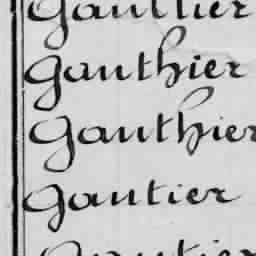 Gauthier
Gauthier
Gauthier
Gautier
Gautier